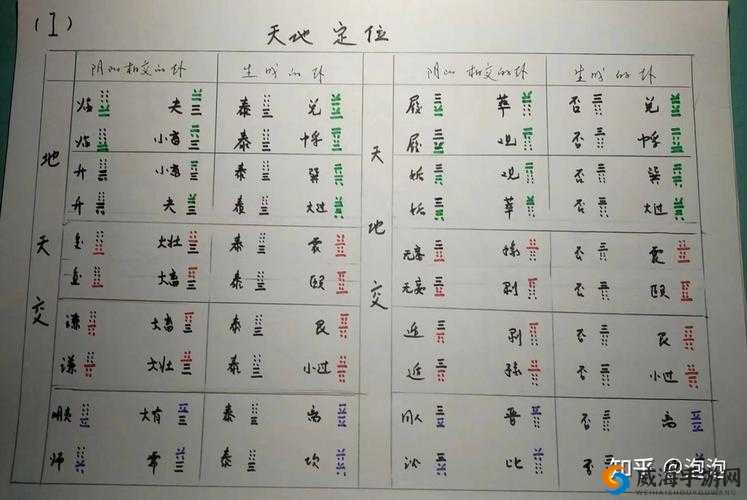 (I) 天地定位
阴阳相交的卦 生成的卦 阴阳相交的卦 生成的卦
地天交
天地交
临 夬 泰 兑 履 萃 否 兑
临 小畜 泰 中孚 履 观 否 中孚
升 小畜 泰 巽 姤 观 否 巽
升 夬 泰 大过 姤 萃 否 大过
复 大壮 泰 震 无妄 豫 否 震
复 大畜 泰 颐 无妄 剥 否 颐
谦 大畜 泰 艮 遁 剥 否 艮
谦 大壮 泰 小过 遁 豫 否 小过
明夷 大有 泰 离 同人 晋 否 离
师 需 泰 坎 讼 比 否
知乎 @泡泡
威海手游网
WEIHAISHOUYOUWANG